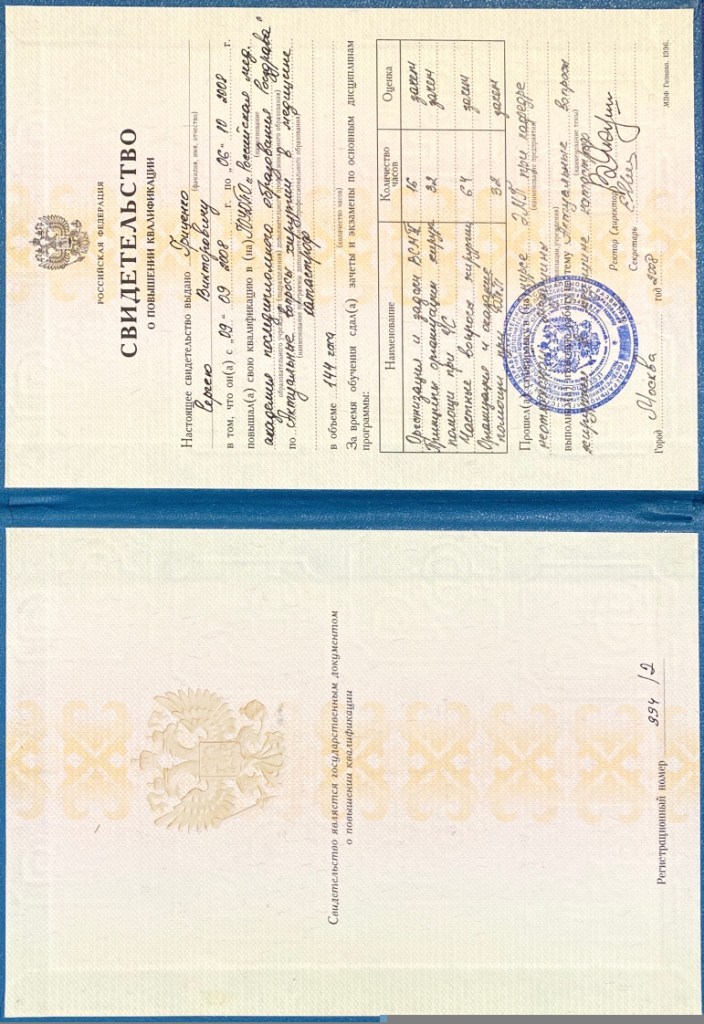 Свидетельство является государственным документом
о повышении квалификации
Регистрационный номер 994/2
РОССИЙСКАЯ ФЕДЕРАЦИЯ
СВИДЕТЕЛЬСТВО
О ПОВЫШЕНИИ КВАЛИФИКАЦИИ
Настоящее свидетельство выдано Гриценко
(фамилия, имя, отчество)
Сергею Викторовичу
в том, что он(а) с „09" 09 2008 г. по „06" 10 2008 г.
повышал(а) свою квалификацию в (на) ГОУДПО „Российская мед.
(наименование
академия последипломного образования Росздрава"
образовательного учреждения (подразделения) дополнительного профессионального образования)
по Актуальные вопросы хирургии в медицине
(наименование программы дополнительного профессионального образования)
катастроф
в объеме 144 часа
(количество часов)
За время обучения сдал(а) зачеты и экзамены по основным дисциплинам
программы:
Наименование Количество часов Оценка
Организация и задачи ВСМК 16 зачет
Принципы организации хирург 32 зачет
помощи при ЧС
Частные вопросы хирургии 64 зачет
Организация и оказание
помощи при 32 зачет
Прошел(а) стажировку в (на) курсе ЭМП при кафедре
(наименование предприятия,
неотложной медицины
организации, учреждения)
выполнил(а) итоговую работу на тему Актуальные вопросы
(наименование темы)
хирургии в медицине катастроф
Ректор (директор)
Секретарь
Город Москва год 2008
МПФ Гознака. 1996.